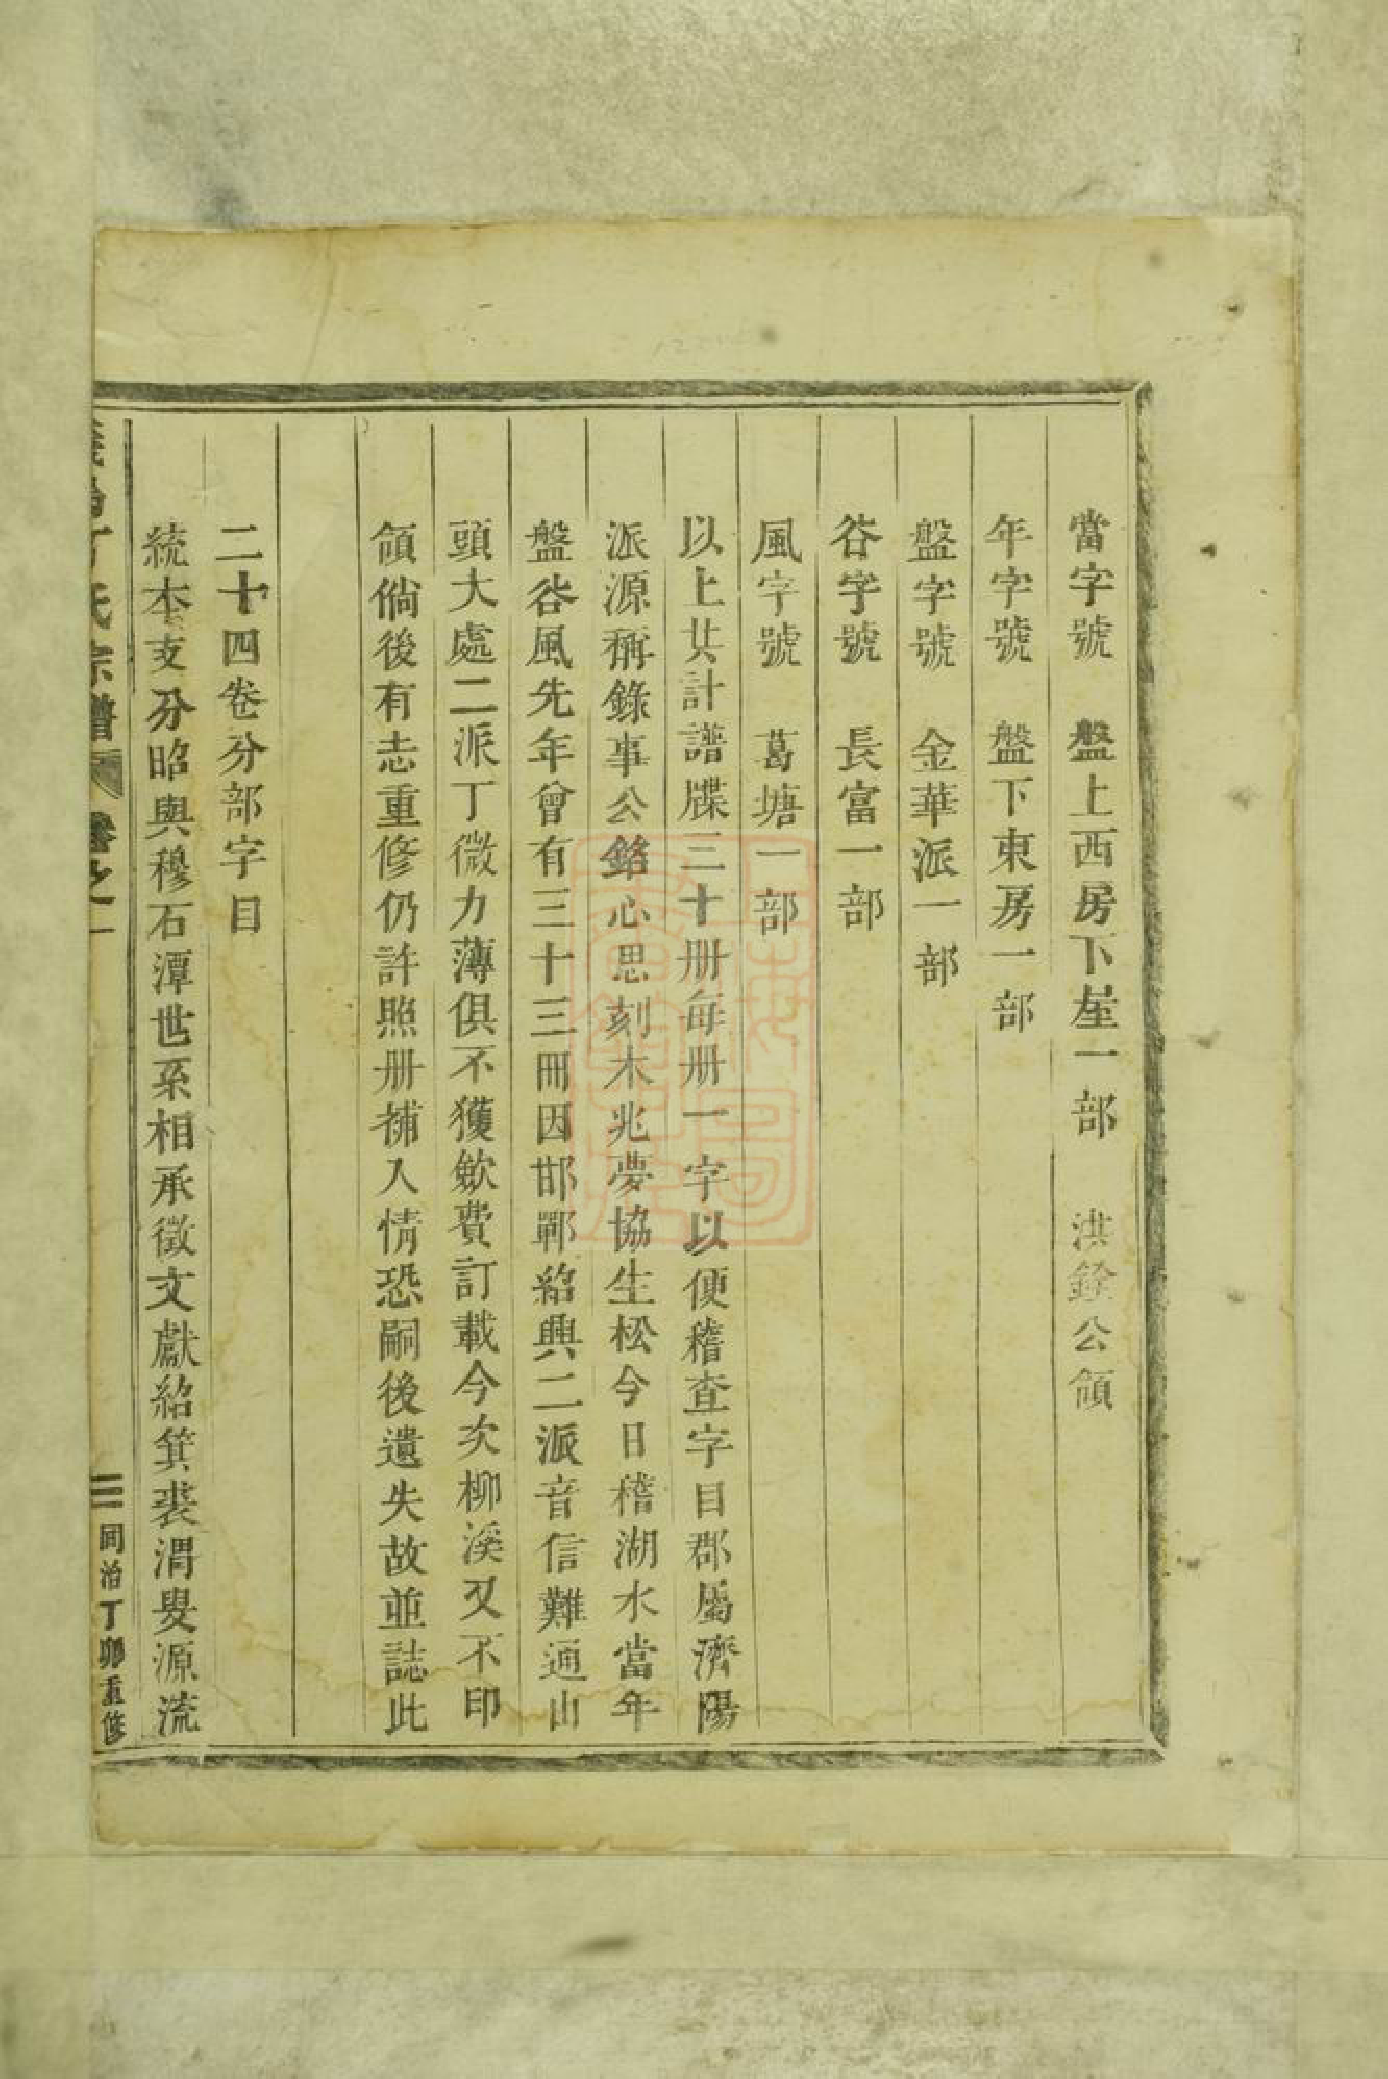 當字號　盤上西房下屋一部　洪銓公領
年字號　盤下東房一部
盤字號　金華派一部
谷字號　長富一部
風字號　葛塘一部
以上共計譜牒二十册每册一字以便稽查字目郡屬濟陽
派源稱錄事公銘心思刻木兆夢協生松今日稽湖水當年
盤谷風先年曾有三十三冊因邯鄲紹興二派音信難通山
頭大處二派丁微力薄俱不獲斂費訂載今次柳溪又不印
領倘後有志重修仍許照册補入情恐嗣後遺失故並誌此
二十四卷分部字目
統本支分昭與穆石潭世系相承徵文獻紹箕裘渭叟源流
丁氏宗譜　卷之一　二　同治丁卯重修